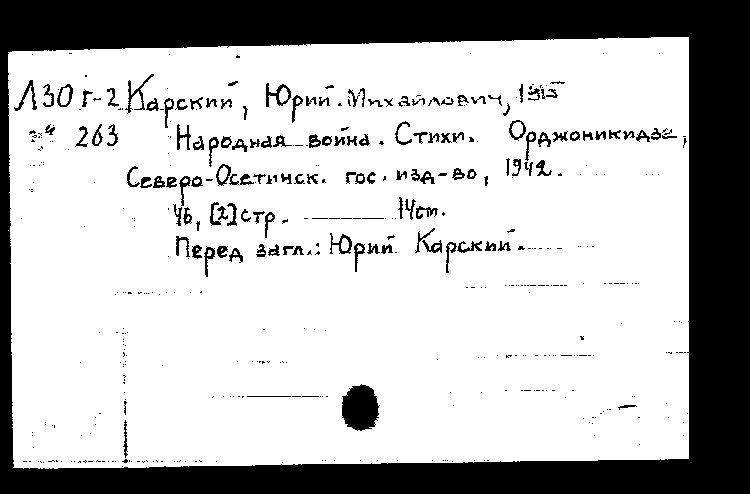 Л30 г-2 Карский, Юрий Михайлович, 1915
№ 263 Народная война. Стихи. Орджоникидзе,
Северо-Осетинск. гос. изд-во, 1942.
46, [2] стр. 14 cm.
Перед загл.: Юрий Карский.